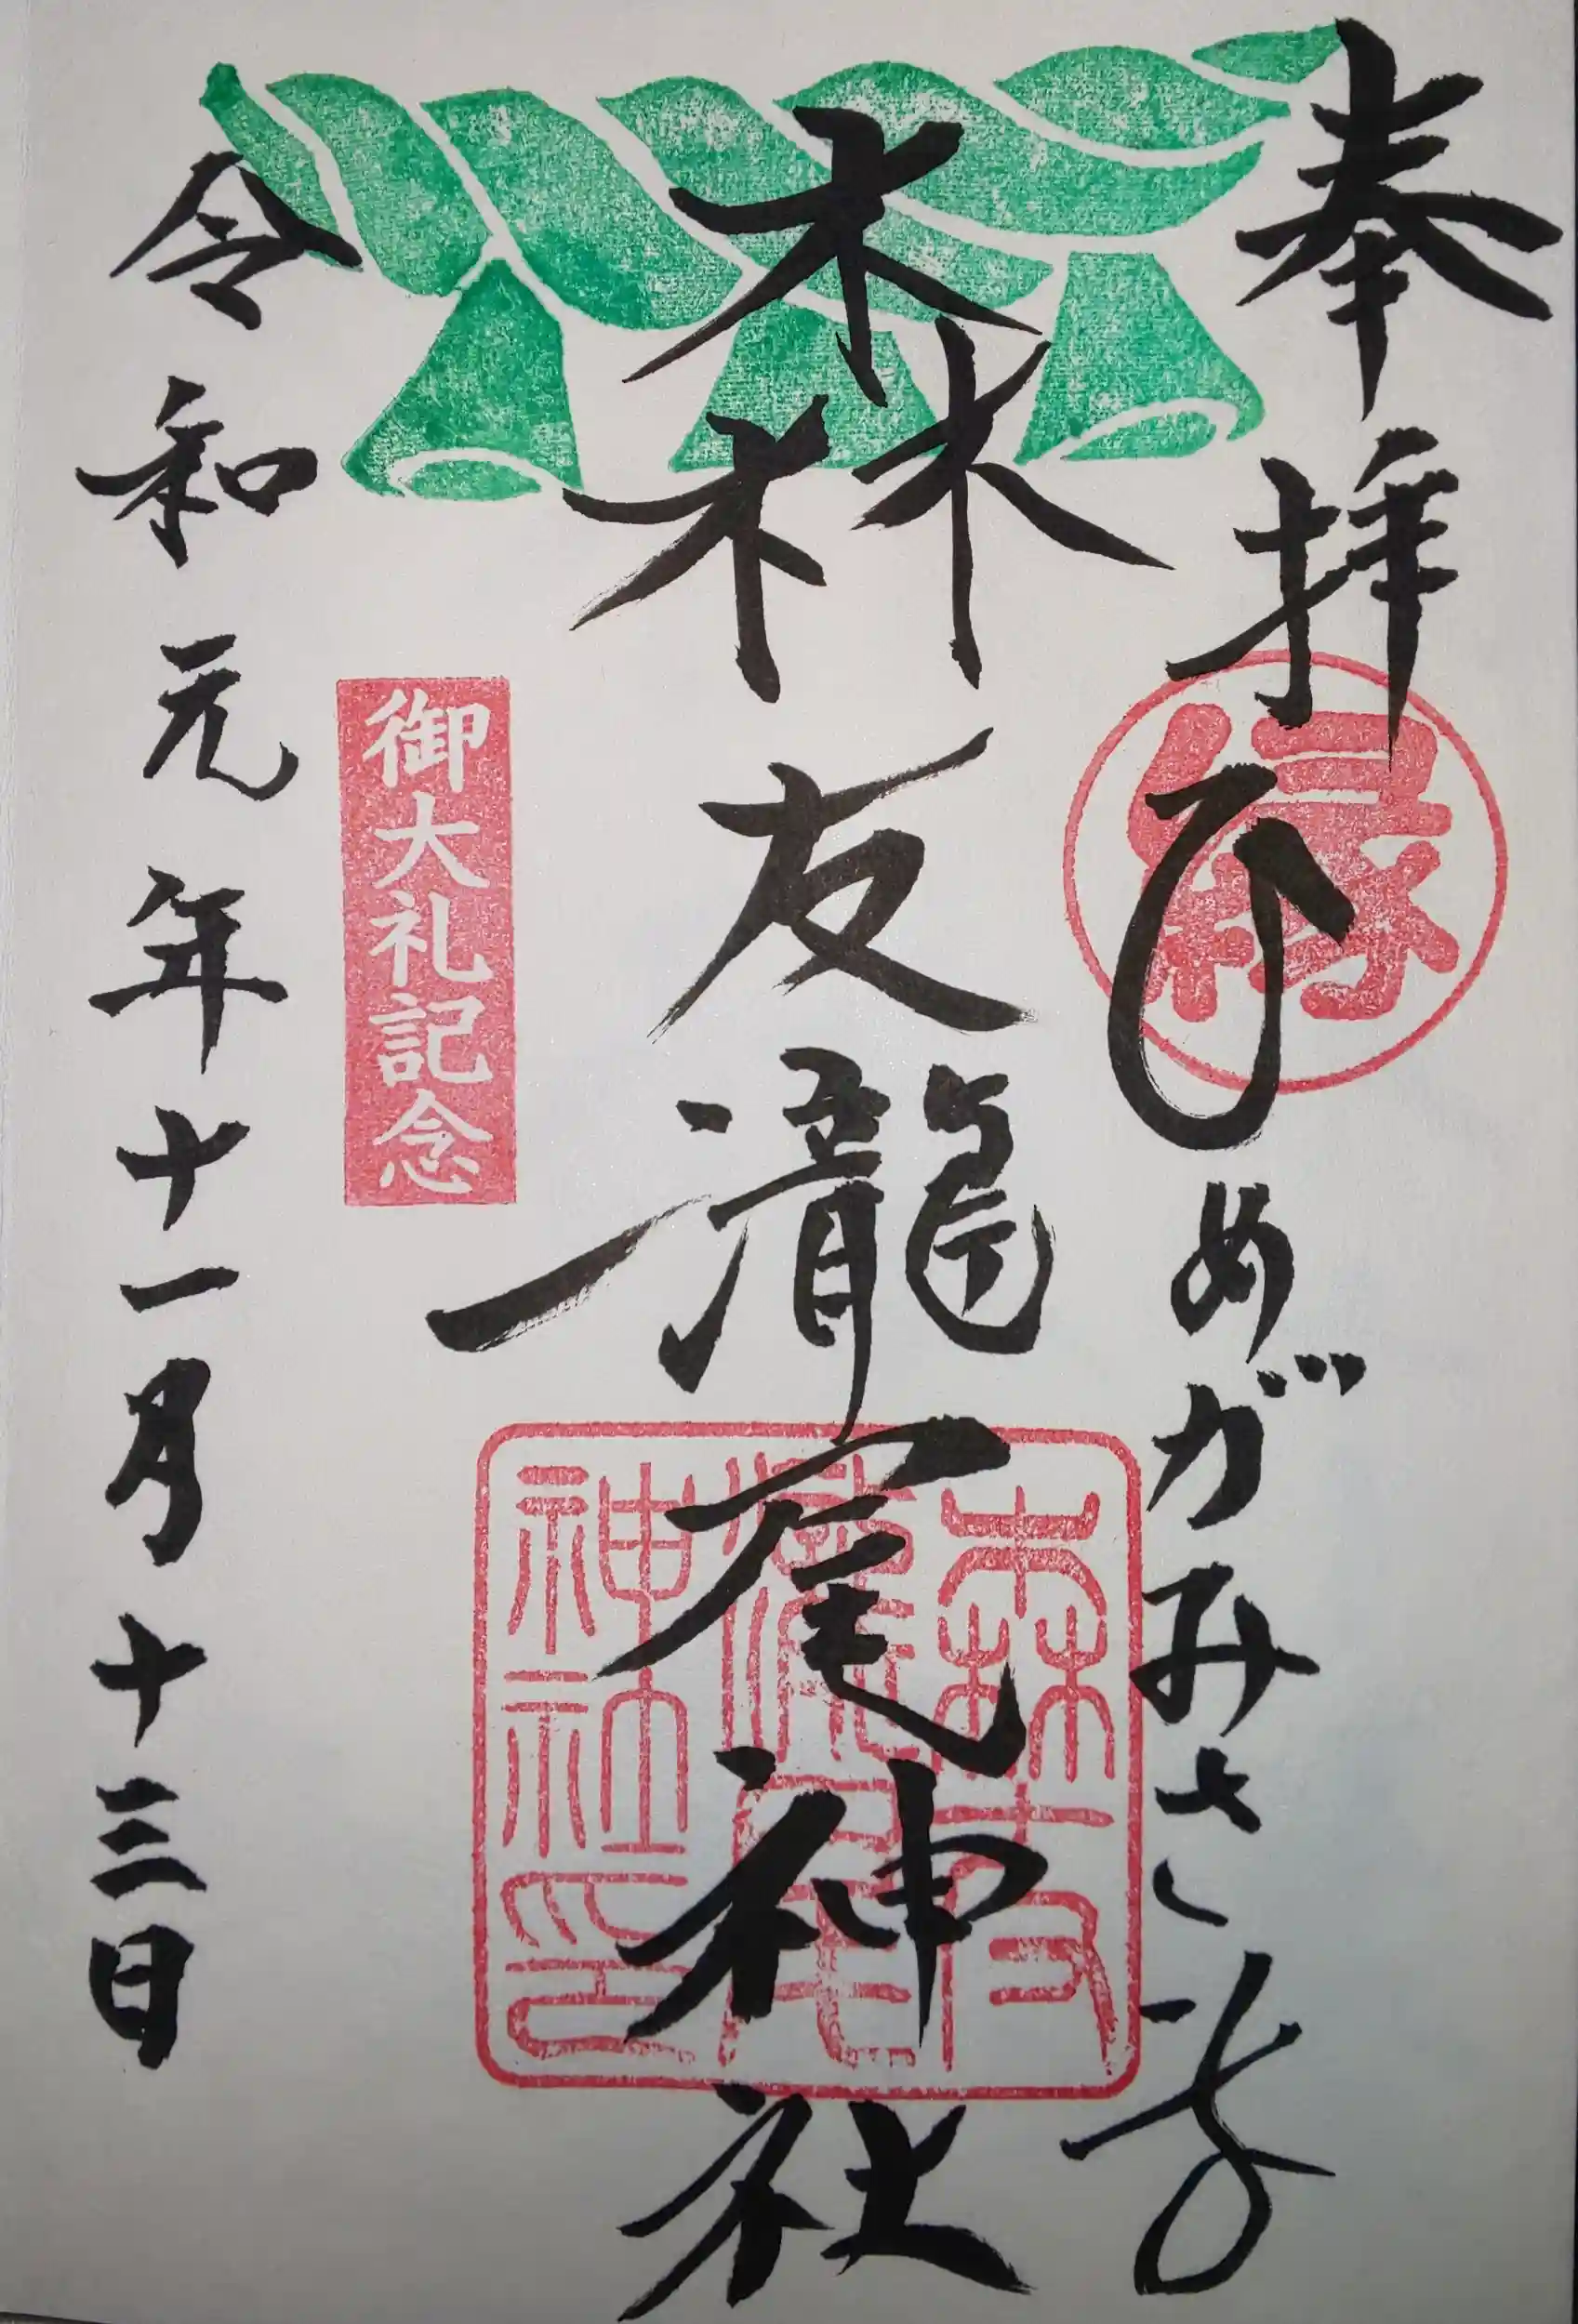 奉拝
ひめがみさま
縁
森友瀧尾神社
森友
瀧尾
神社印
御大礼記念
令和元年十一月十三日